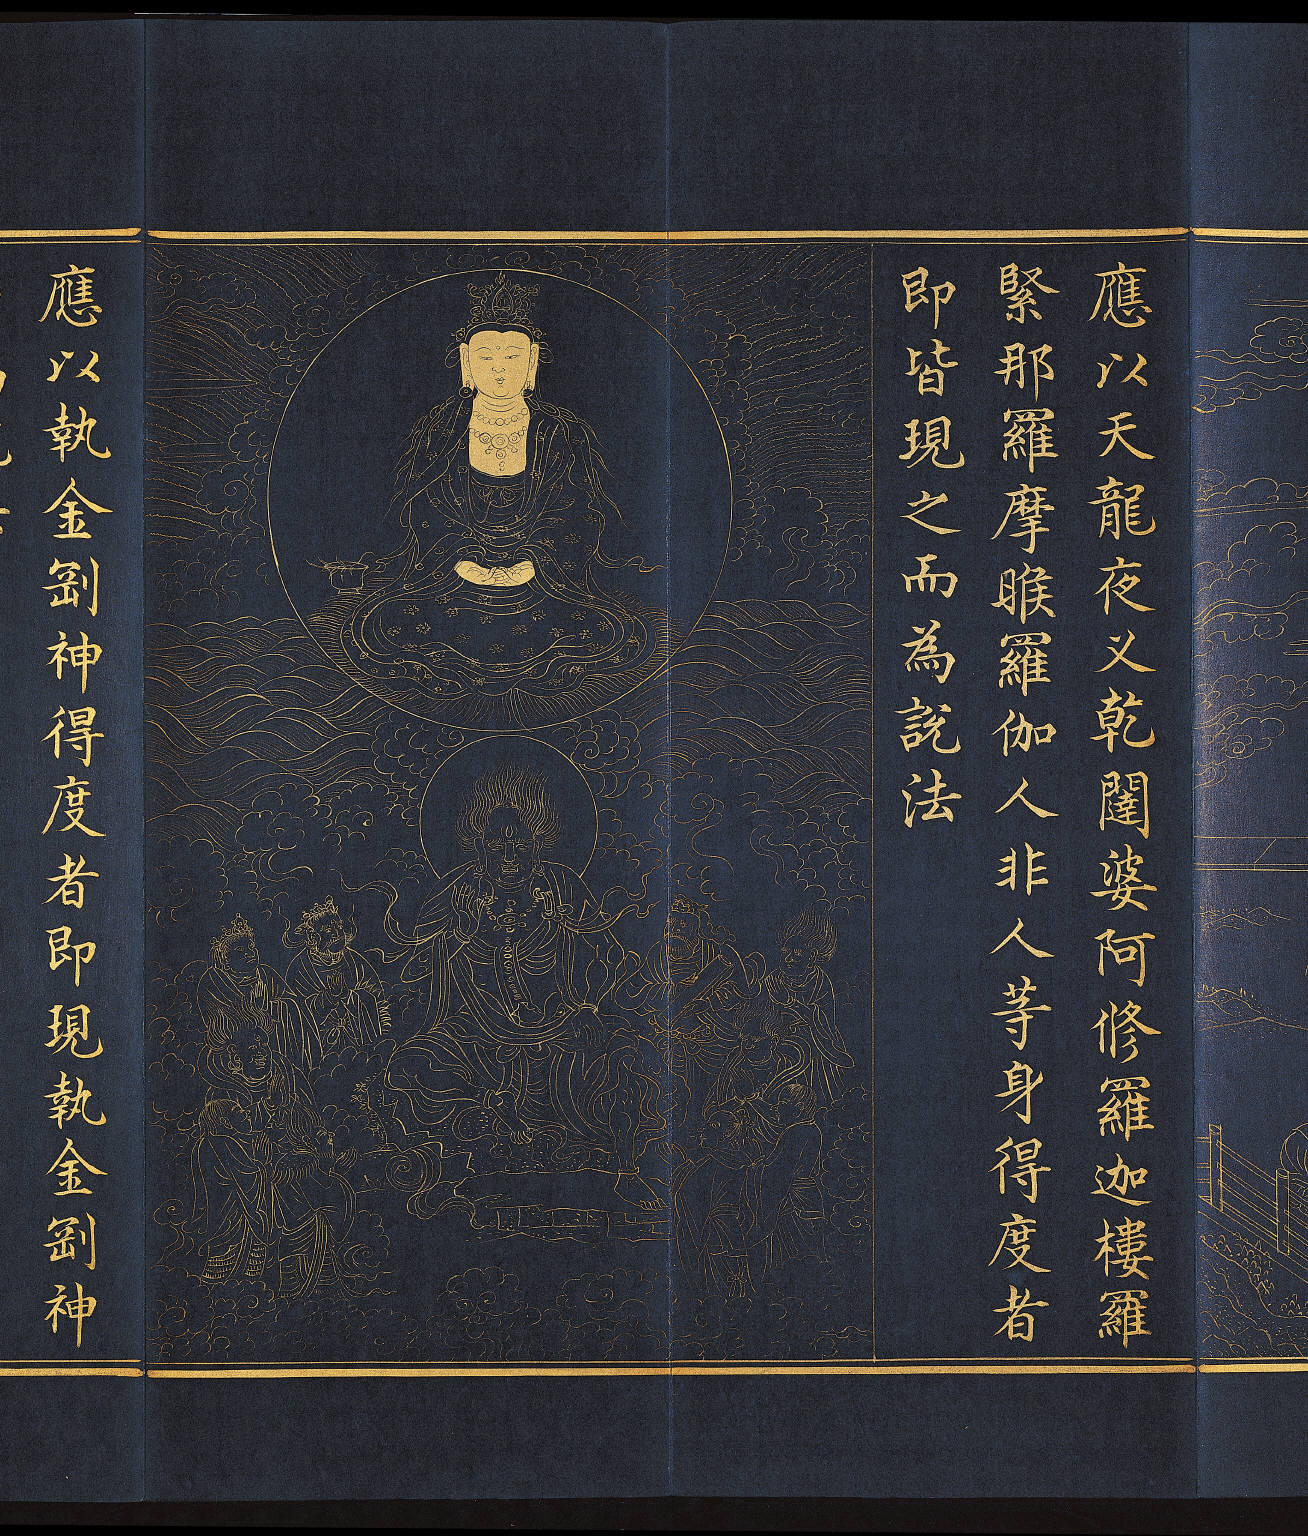 應以天龍夜义乾闥婆阿修羅迦樓羅
緊那羅摩睺羅伽人非人等身得度者
即皆現之而為說法
應以執金剛神得度者即現執金剛神